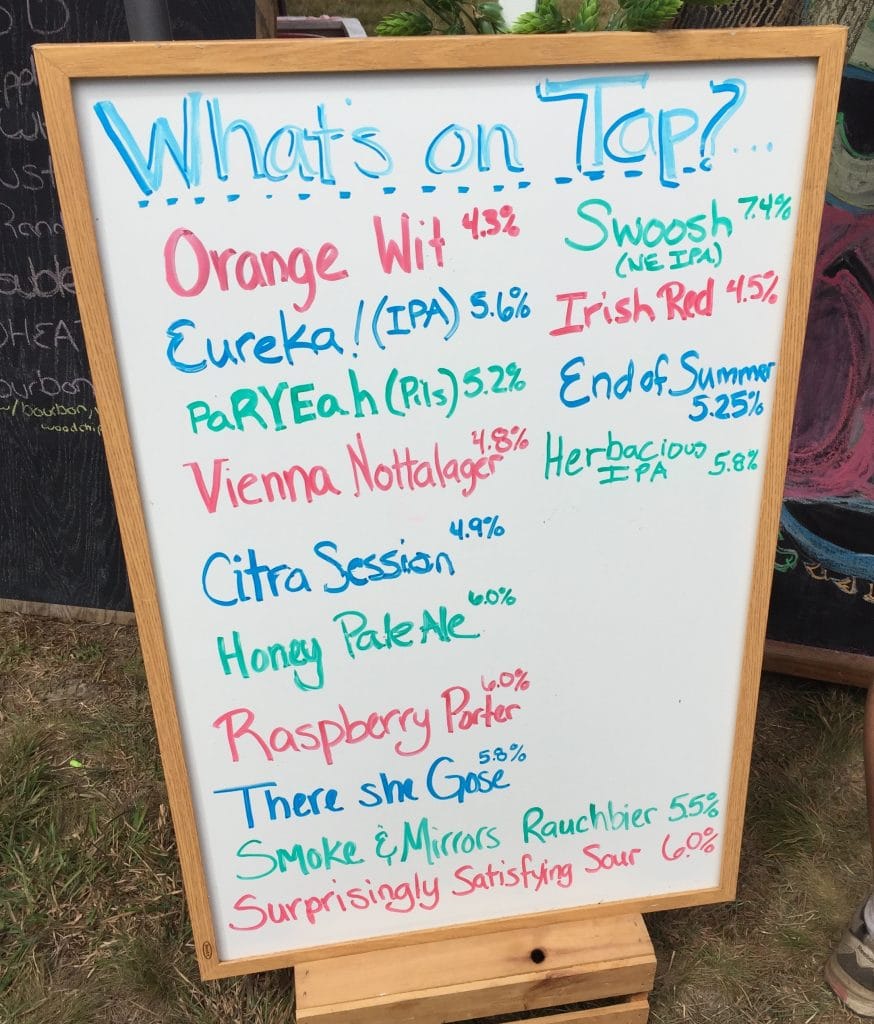 What's on Tap?...
Orange Wit 4.3%
Eureka! (IPA) 5.6%
PaRYEah (Pils) 5.2%
Vienna Nottalager 4.8%
Citra Session 4.9%
Honey Pale Ale 6.0%
Raspberry Porter 6.0%
There she Gose 5.8%
Smoke & Mirrors Rauchbier 5.5%
Surprisingly Satisfying Sour 6.0%
Swoosh 7.4%
(NE IPA)
Irish Red 4.5%
End of Summer
5.25%
Herbacious
IPA 5.8%
ourbon
bourbon,
woodchip